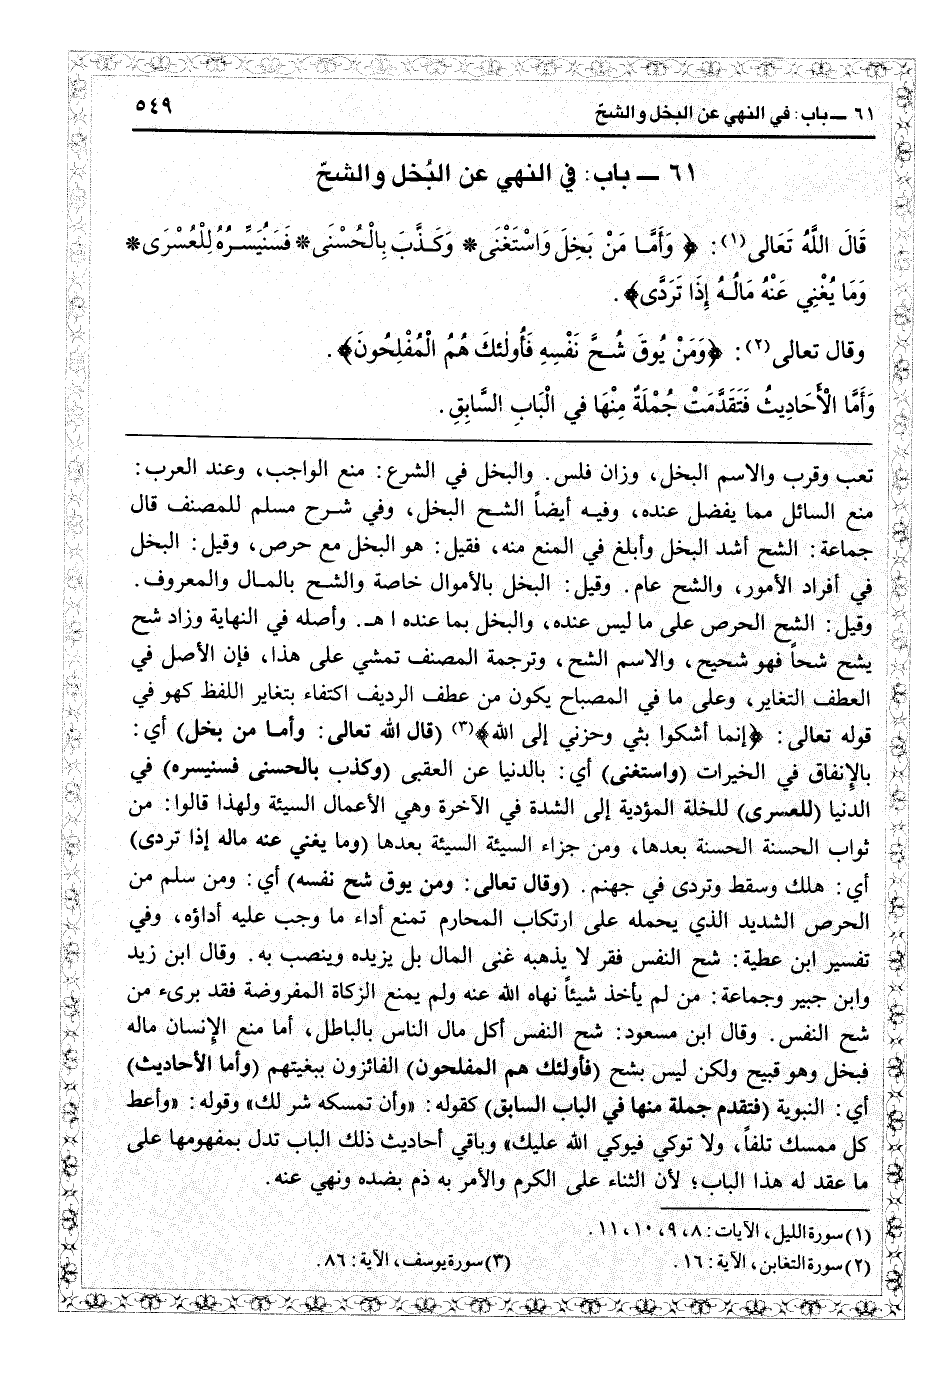 ٦١ ـ باب: في النهي عن البخل والشحّ
٥٤٩
٦١ ـ باب: في النهي عن البُخل والشحّ
قَالَ اللَّهُ تَعَالى(١): ﴿ وَأَمَّـا مَنْ بَخِلَ وَاسْتَغْنَى* وَكَـذَّبَ بِالْحُسْنَى* فَسَنُيَسِّـرُهُ لِلْعُسْرَى*
وَمَا يُغْنِي عَنْهُ مَالُـهُ إِذَا تَرَدَّى﴾.
وقال تعالى(٢): ﴿وَمَنْ يُوقَ شُـحَّ نَفْسِهِ فَأُولٰئكَ هُمُ الْمُفْلِحُونَ﴾.
وَأَمَّا الْأَحَادِيثُ فَتَقَدَّمَتْ جُمْلَةٌ مِنْهَا في الْبَابِ السَّابِقِ.
تعب وقرب والاسم البخل، وزان فلس. والبخل في الشرع: منع الواجب، وعند العرب:
منع السائل مما يفضل عنده، وفيـه أيضاً الشـح البخل، وفي شـرح مسلم للمصنف قال
جماعة: الشح أشد البخل وأبلغ في المنع منه، فقيل: هو البخل مع حرص، وقيل: البخل
في أفراد الأمور، والشح عام. وقيل: البخل بالأموال خاصة والشـح بالمـال والمعروف.
وقيل: الشح الحرص على ما ليس عنده، والبخل بما عنده ا هـ. وأصله في النهاية وزاد شح
يشح شحاً فهو شحيح، والاسم الشح، وترجمة المصنف تمشي على هذا، فإن الأصل في
العطف التغاير، وعلى ما في المصباح يكون من عطف الرديف اكتفاء بتغاير اللفظ كهو في
قوله تعالى: ﴿إنما أشكوا بثي وحزني إلى الله﴾(٣) (قال الله تعالى: وأمـا من بخل) أي:
بالإِنفاق في الخيرات (واستغنى) أي: بالدنيا عن العقبى (وكذب بالحسنى فسنيسره) في
الدنيا (للعسرى) للخلة المؤدية إلى الشدة في الآخرة وهي الأعمال السيئة ولهذا قالوا: من
ثواب الحسنة الحسنة بعدها، ومن جزاء السيئة السيئة بعدها (وما يغني عنه ماله إذا تردى)
أي: هلك وسقط وتردى في جهنم. (وقال تعالى: ومن يوق شح نفسه) أي: ومن سلم من
الحرص الشديد الذي يحمله على ارتكاب المحارم تمنع أداء ما وجب عليه أداؤه، وفي
تفسير ابن عطية: شح النفس فقر لا يذهبه غنى المال بل يزيده وينصب به. وقال ابن زيد
وابن جبير وجماعة: من لم يأخذ شيئاً نهاه الله عنه ولم يمنع الزكاة المفروضة فقد برىء من
شح النفس. وقال ابن مسعود: شح النفس أكل مال الناس بالباطل، أما منع الإِنسان ماله
فبخل وهو قبيح ولكن ليس بشح (فأولئك هم المفلحون) الفائزون ببغيتهم (وأما الأحاديث)
أي: النبوية (فتقدم جملة منها في الباب السابق) كقوله: «وأن تمسكه شر لك» وقوله: «وأعط
كل ممسك تلفاً، ولا توكي فيوكي الله عليك» وباقي أحاديث ذلك الباب تدل بمفهومها على
ما عقد له هذا الباب؛ لأن الثناء على الكرم والأمر به ذم بضده ونهي عنه.
(١) سورة الليل، الآيات: ٨، ٩، ١٠، ١١.
(٢) سورة التغابن، الآية: ١٦.
(٣) سورة يوسف، الآية: ٨٦.